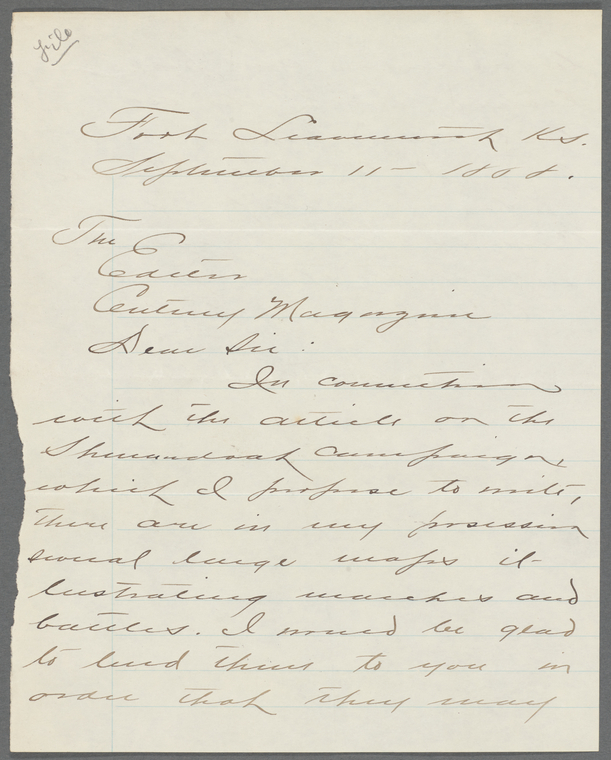 file
Fort Leavenworth Ks.
September 11 - 1888.
The
Editor
Century Magazine
Dear Sir:
In connection
with the article on the
Shenandoah Campaign,
which I propose to write,
there are in my possession
several large maps il-
lustrating marches and
battles. I would be glad
to lend them to you in
order that they may